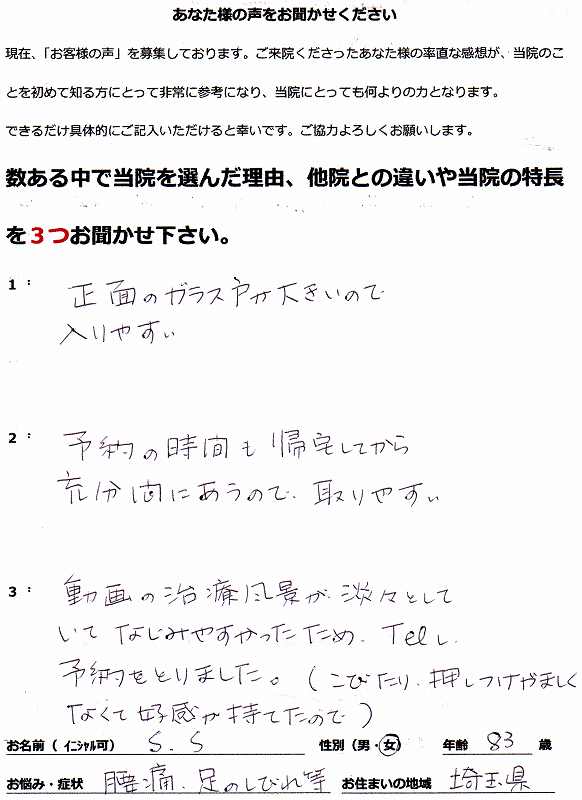 あなた様の声をお聞かせください
現在、「お客様の声」を募集しております。ご来院くださったあなた様の率直な感想が、当院のこ
とを初めて知る方にとって非常に参考になり、当院にとっても何よりの力となります。
できるだけ具体的にご記入いただけると幸いです。ご協力よろしくお願いします。
数ある中で当院を選んだ理由、他院との違いや当院の特長
を３つお聞かせ下さい。
1：
正面のガラス戸が大きいので
入りやすい
2：
予約の時間も帰宅してから
充分間にあうので、取りやすい
3：
動画の治療風景が淡々として
いてなじみやすかったため、Telし、
予約をとりました。(こびたり、押しつけがましく
なくて好感が持てたので)
お名前（ｲﾆｼｬﾙ可） S.S 性別（男・女） 年齢 83 歳
お悩み・症状 腰痛、足のしびれ等 お住まいの地域 埼玉県